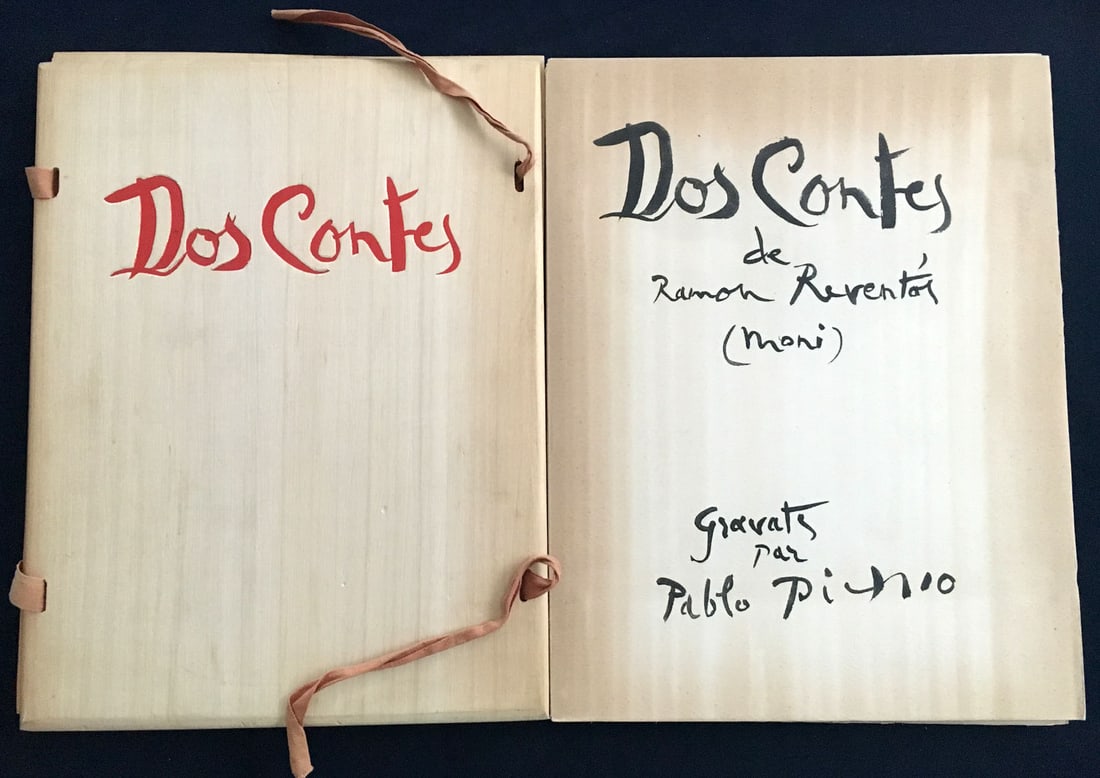 Dos Contes
Dos Contes
de
Ramon Reventós
(Moni)
Gravats
par
Pablo Picasso